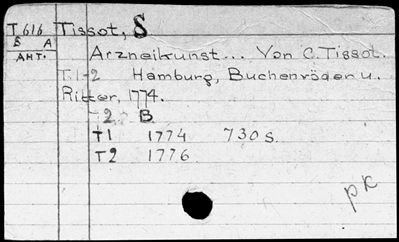 T616 Tissot, S
Б А Arzneikunst... Von C. Tissot.
АНТ.
T.1-2 Hamburg, Buchenröder u.
Ritter, 1774.
2 B
T1 1774 730 s.
T2 1776
рк